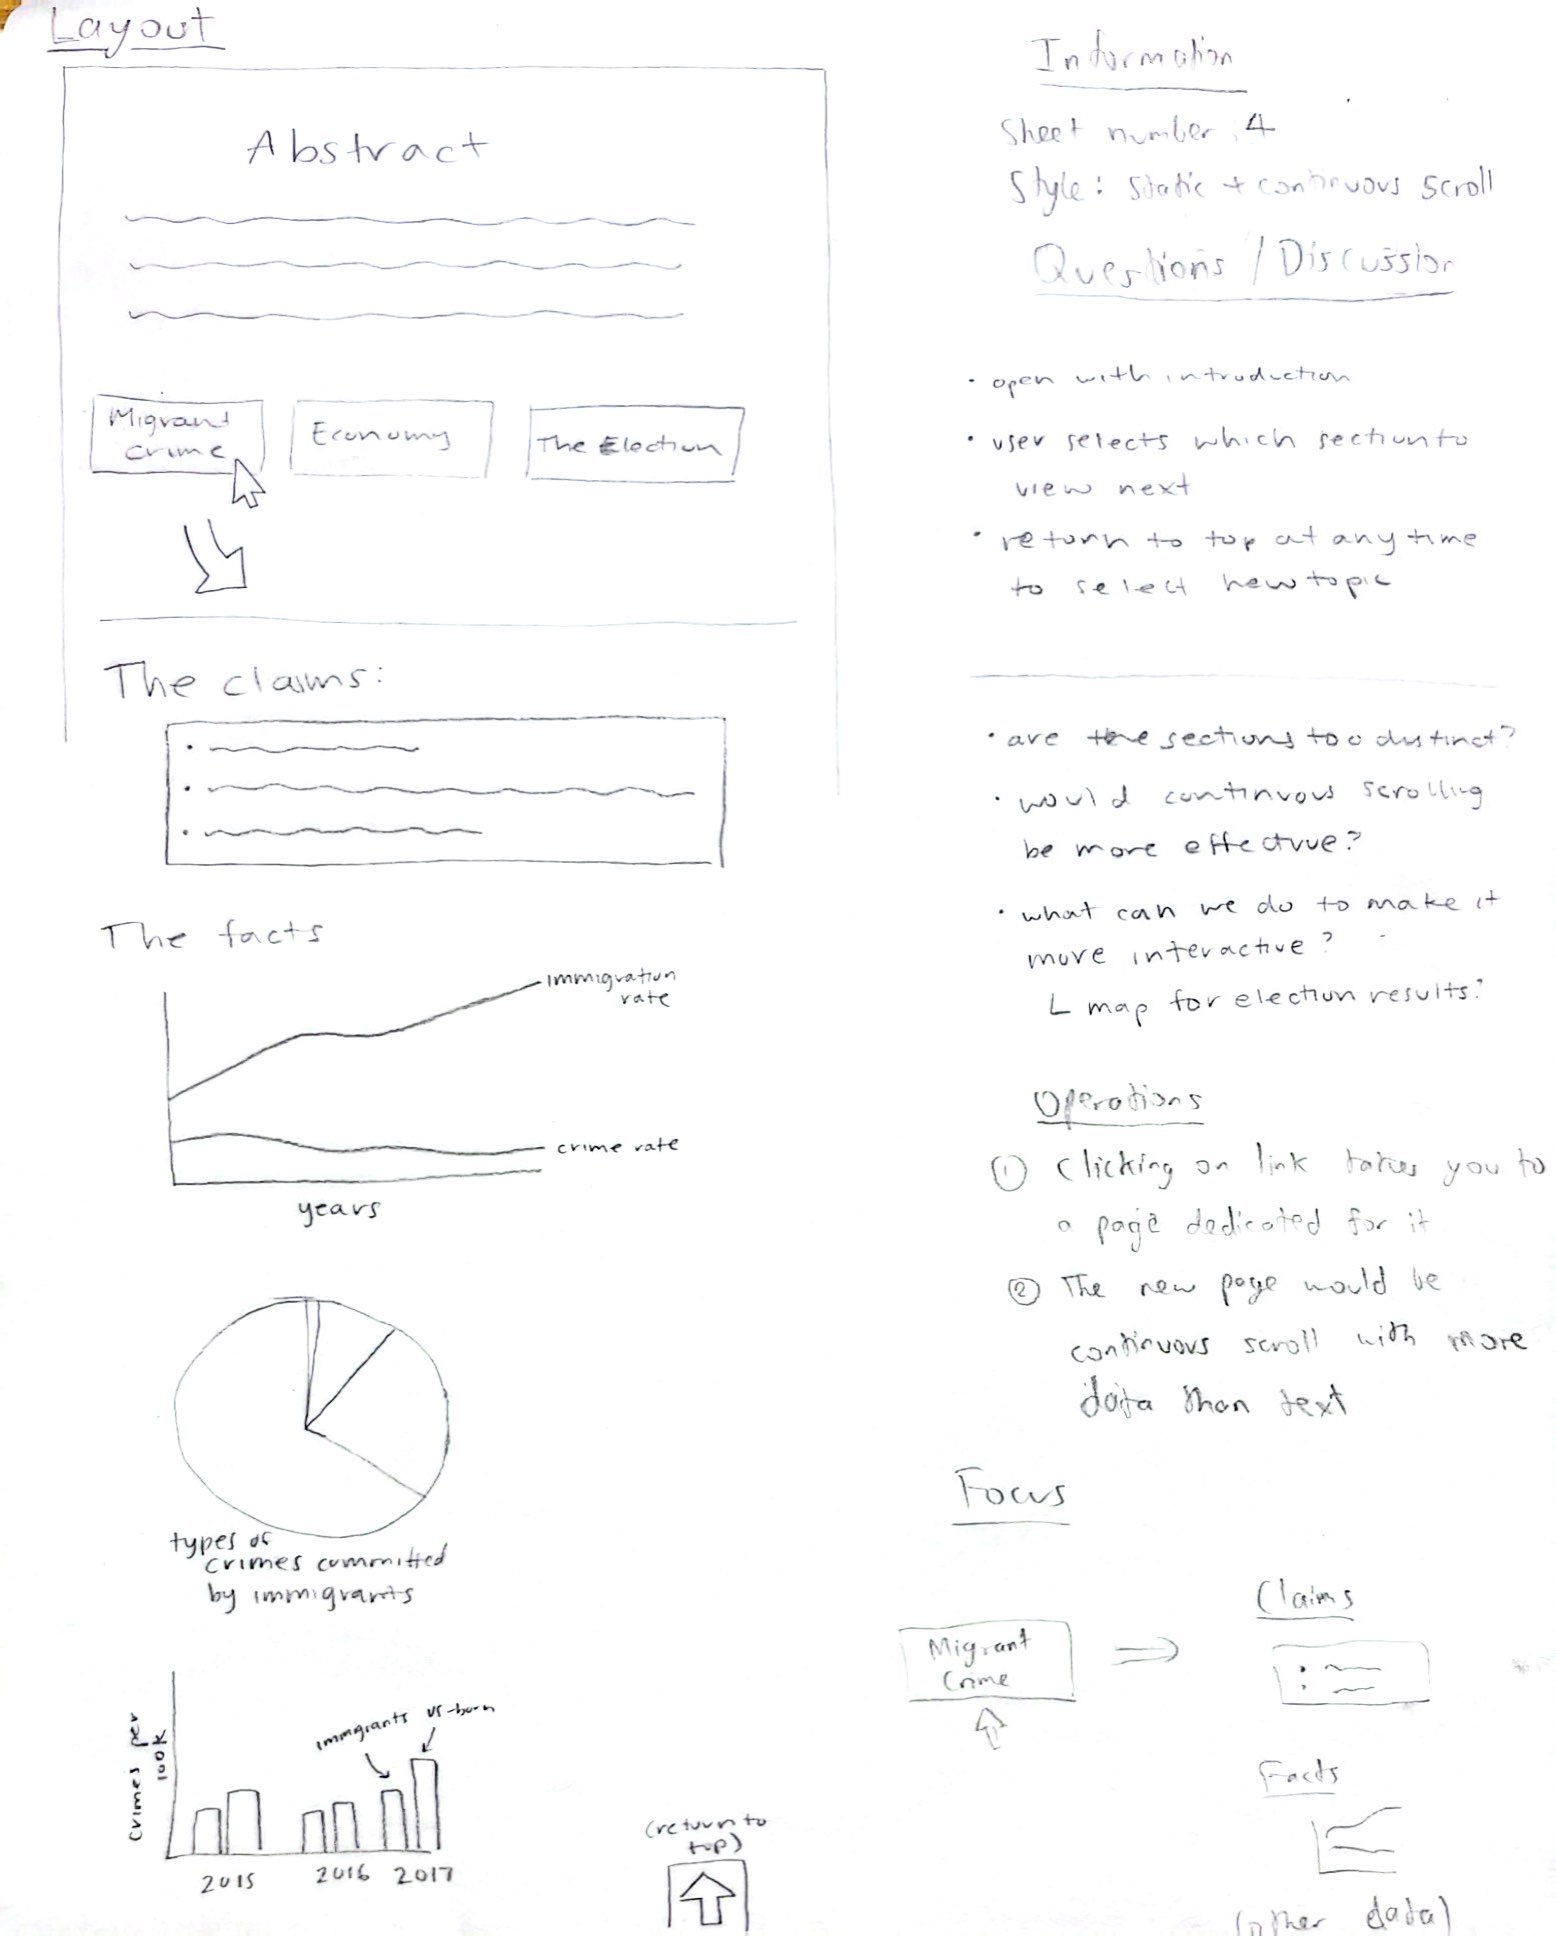 Layout
Abstract
Migrant
crime
Economy
The Election
The claims:
The facts
immigration
rate
crime rate
years
types of
crimes committed
by immigrants
crimes per
100K
immigrants
us-born
2015
2016
2017
(return to
top)
Information
Sheet number: 4
Style: Static + continuous scroll
Questions / Discussion
• open with introduction
• user selects which section to
view next
• return to top at any time
to select new topic
• are the sections too distinct?
• would continuous scrolling
be more effective?
• what can we do to make it
more interactive?
L map for election results?
Operations
① Clicking on link takes you to
a page dedicated for it
② The new page would be
continuous scroll with more
data than text
Focus
Migrant
Crime
Claims
Facts
(other data)